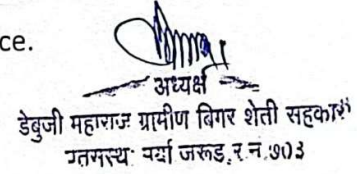 ce.
अध्यक्ष
डेबुजी महाराज ग्रामीण बिगर शेती सहकारी
पतसंस्था मर्या जरूड, र.न. ७०३